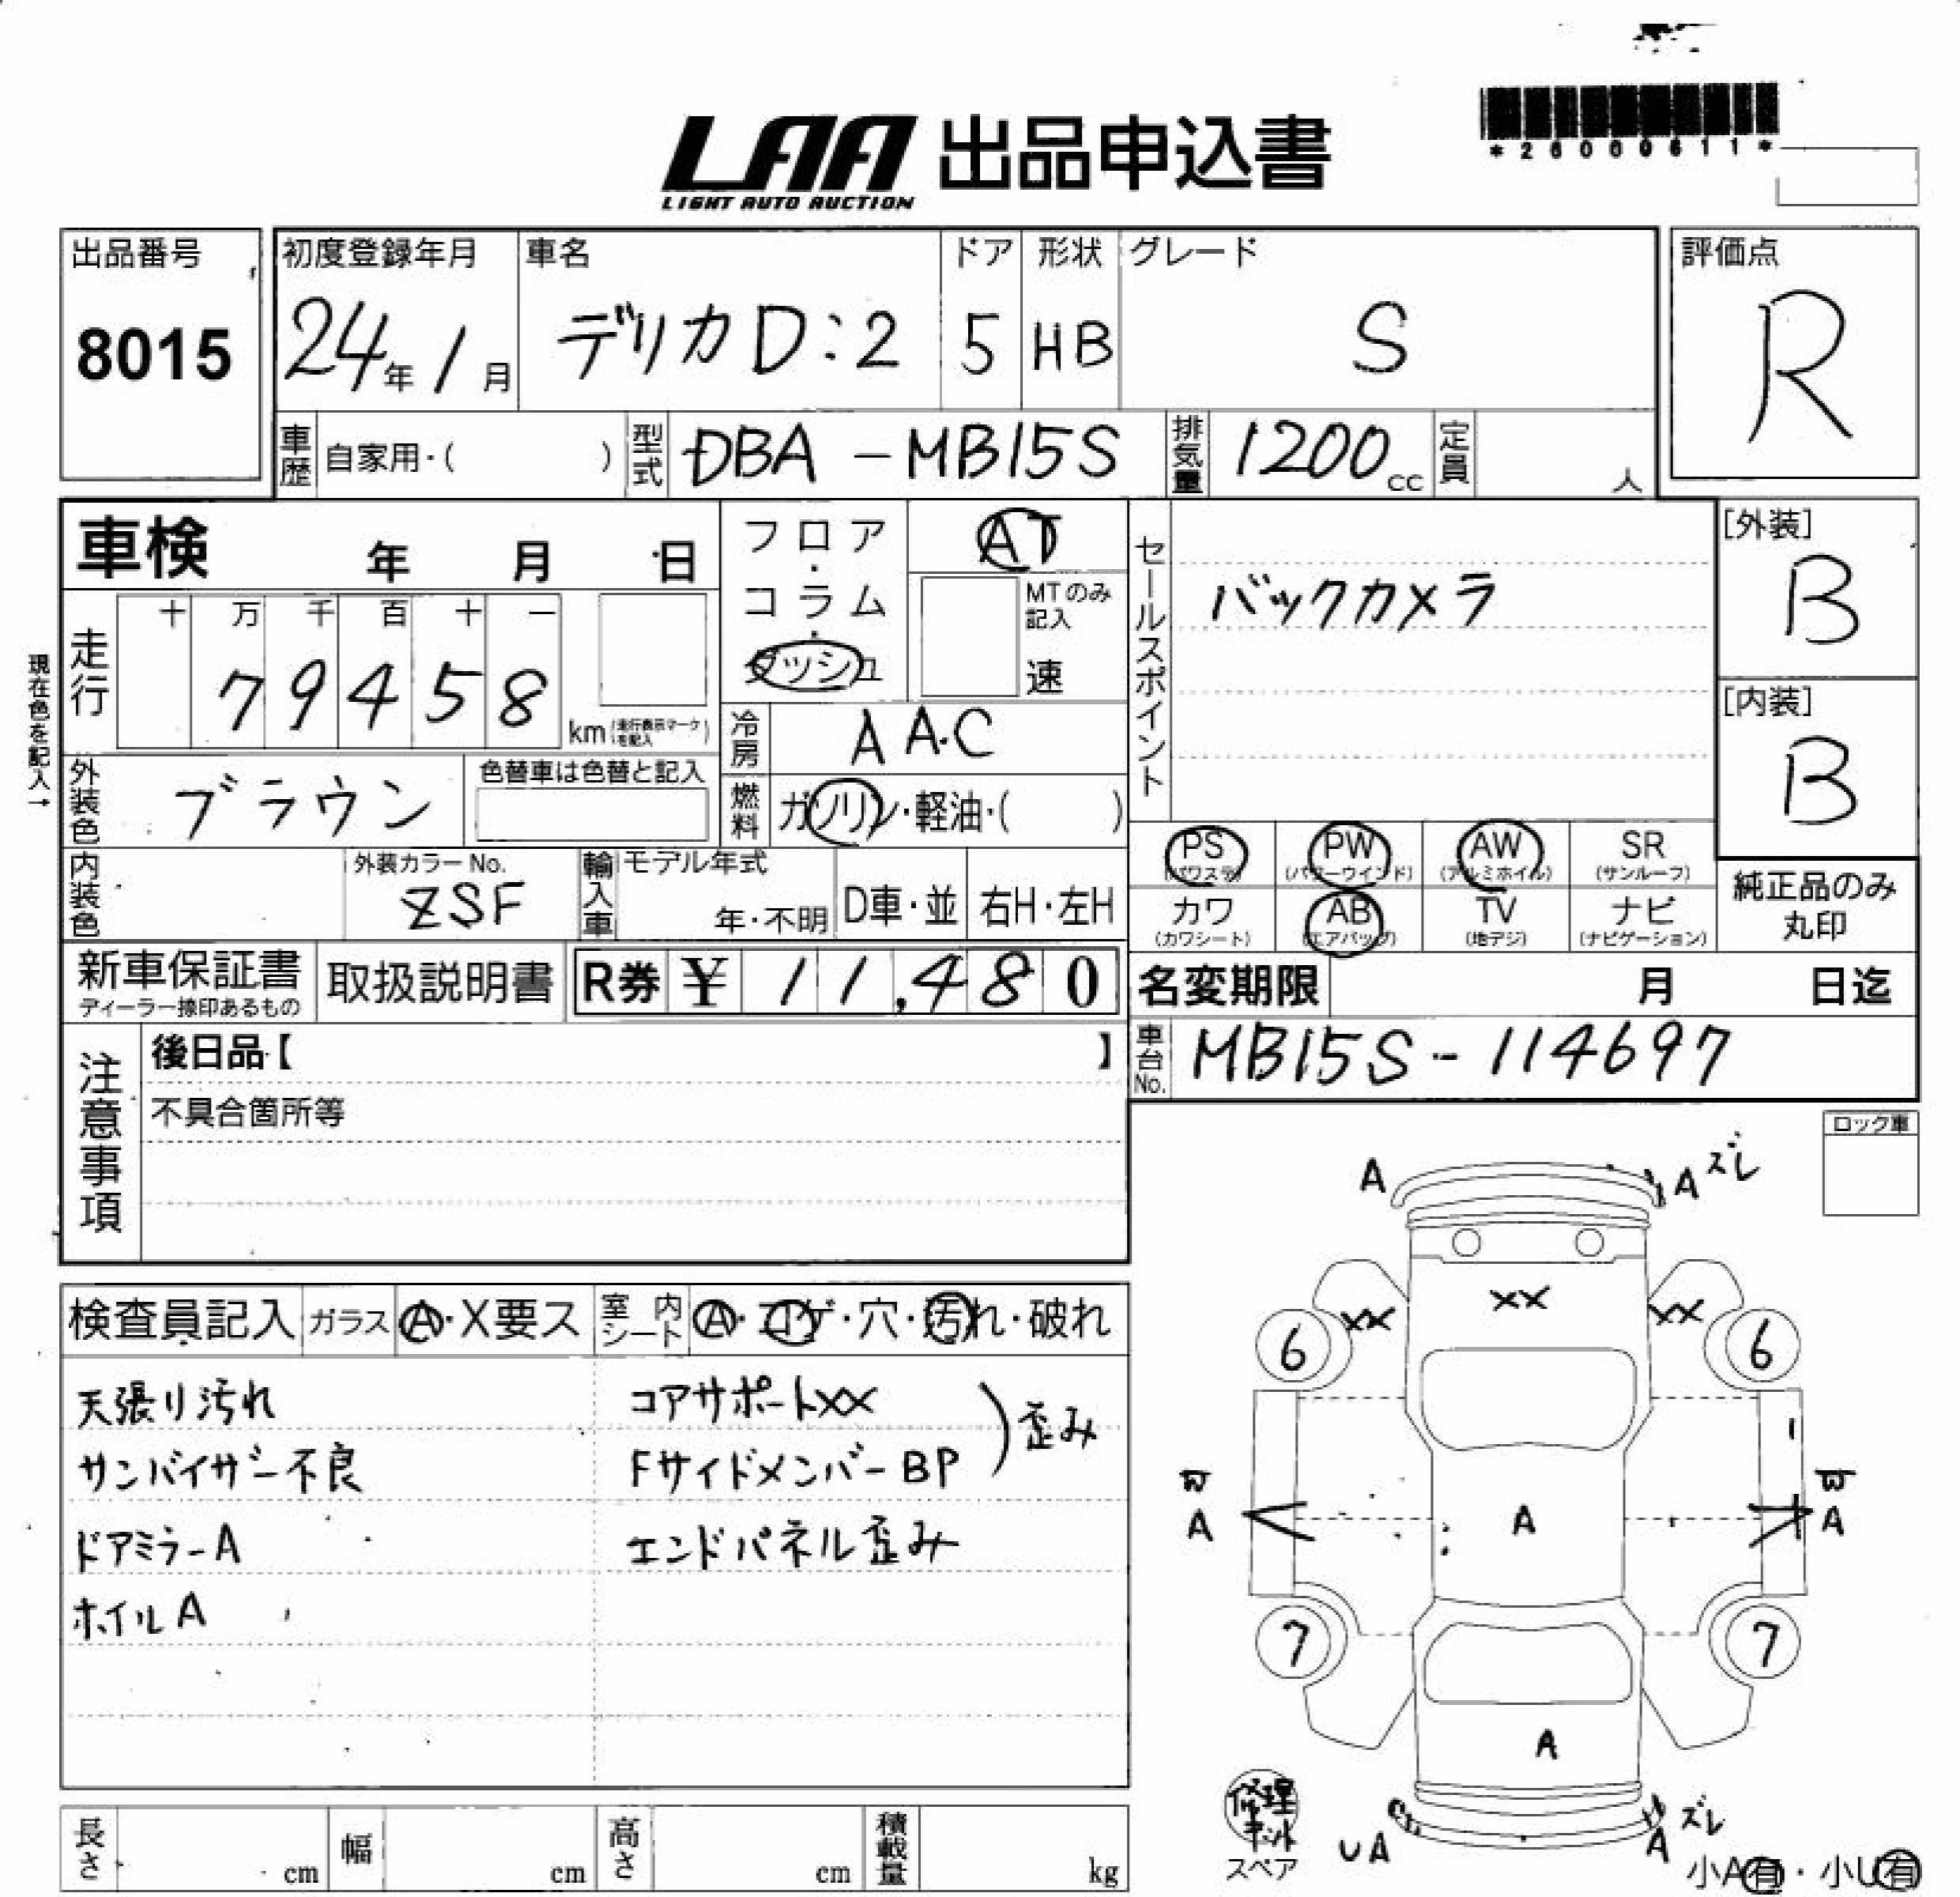 LAA 出品申込書
LIGHT AUTO AUCTION
*26069611*
出品番号
8015
初度登録年月
24年1月
車名
デリカD:2
ドア
5
形状
HB
グレード
S
評価点
R
車歴
自家用・( )
型式
DBA-MB15S
排気量
1200cc
定員
人
車検 年 月 日
フロア・コラム・ダッシュ
AT
MTのみ記入
速
セールスポイント
バックカメラ
[外装]
B
[内装]
B
現在色を記入→
走行
十 万 千 百 十 一
79458
km(走行表示マークを記入)
冷房
AAC
外装色
ブラウン
色替車は色替と記入
燃料
ガソリン・軽油・( )
PS (パワステ)
PW (パワーウインド)
AW (アルミホイル)
SR (サンルーフ)
カワ (カワシート)
AB (エアバッグ)
TV (地デジ)
ナビ (ナビゲーション)
純正品のみ丸印
内装色
外装カラーNo.
ZSF
輸入車
モデル年式
年・不明
D車・並
右H・左H
新車保証書
ディーラー捺印あるもの
取扱説明書
R券 ¥11,480
名変期限 月 日迄
車台No.
MB15S-114697
注意事項
後日品【 】
不具合箇所等
ロック車
検査員記入
ガラス
A・X要ス
室内シート
A・コゲ・穴・汚れ・破れ
天張り汚れ
サンバイザー不良
ドアミラーA
ホイルA
コアサポートXX
FサイドメンバーBP
歪み
エンドパネル歪み
A
A ズレ
XX
XX
XX
6
6
A
A
A
7
7
A
UA
A ズレ
修理キット
スペア
小A有・小U有
長さ cm
幅 cm
高さ cm
積載量 kg